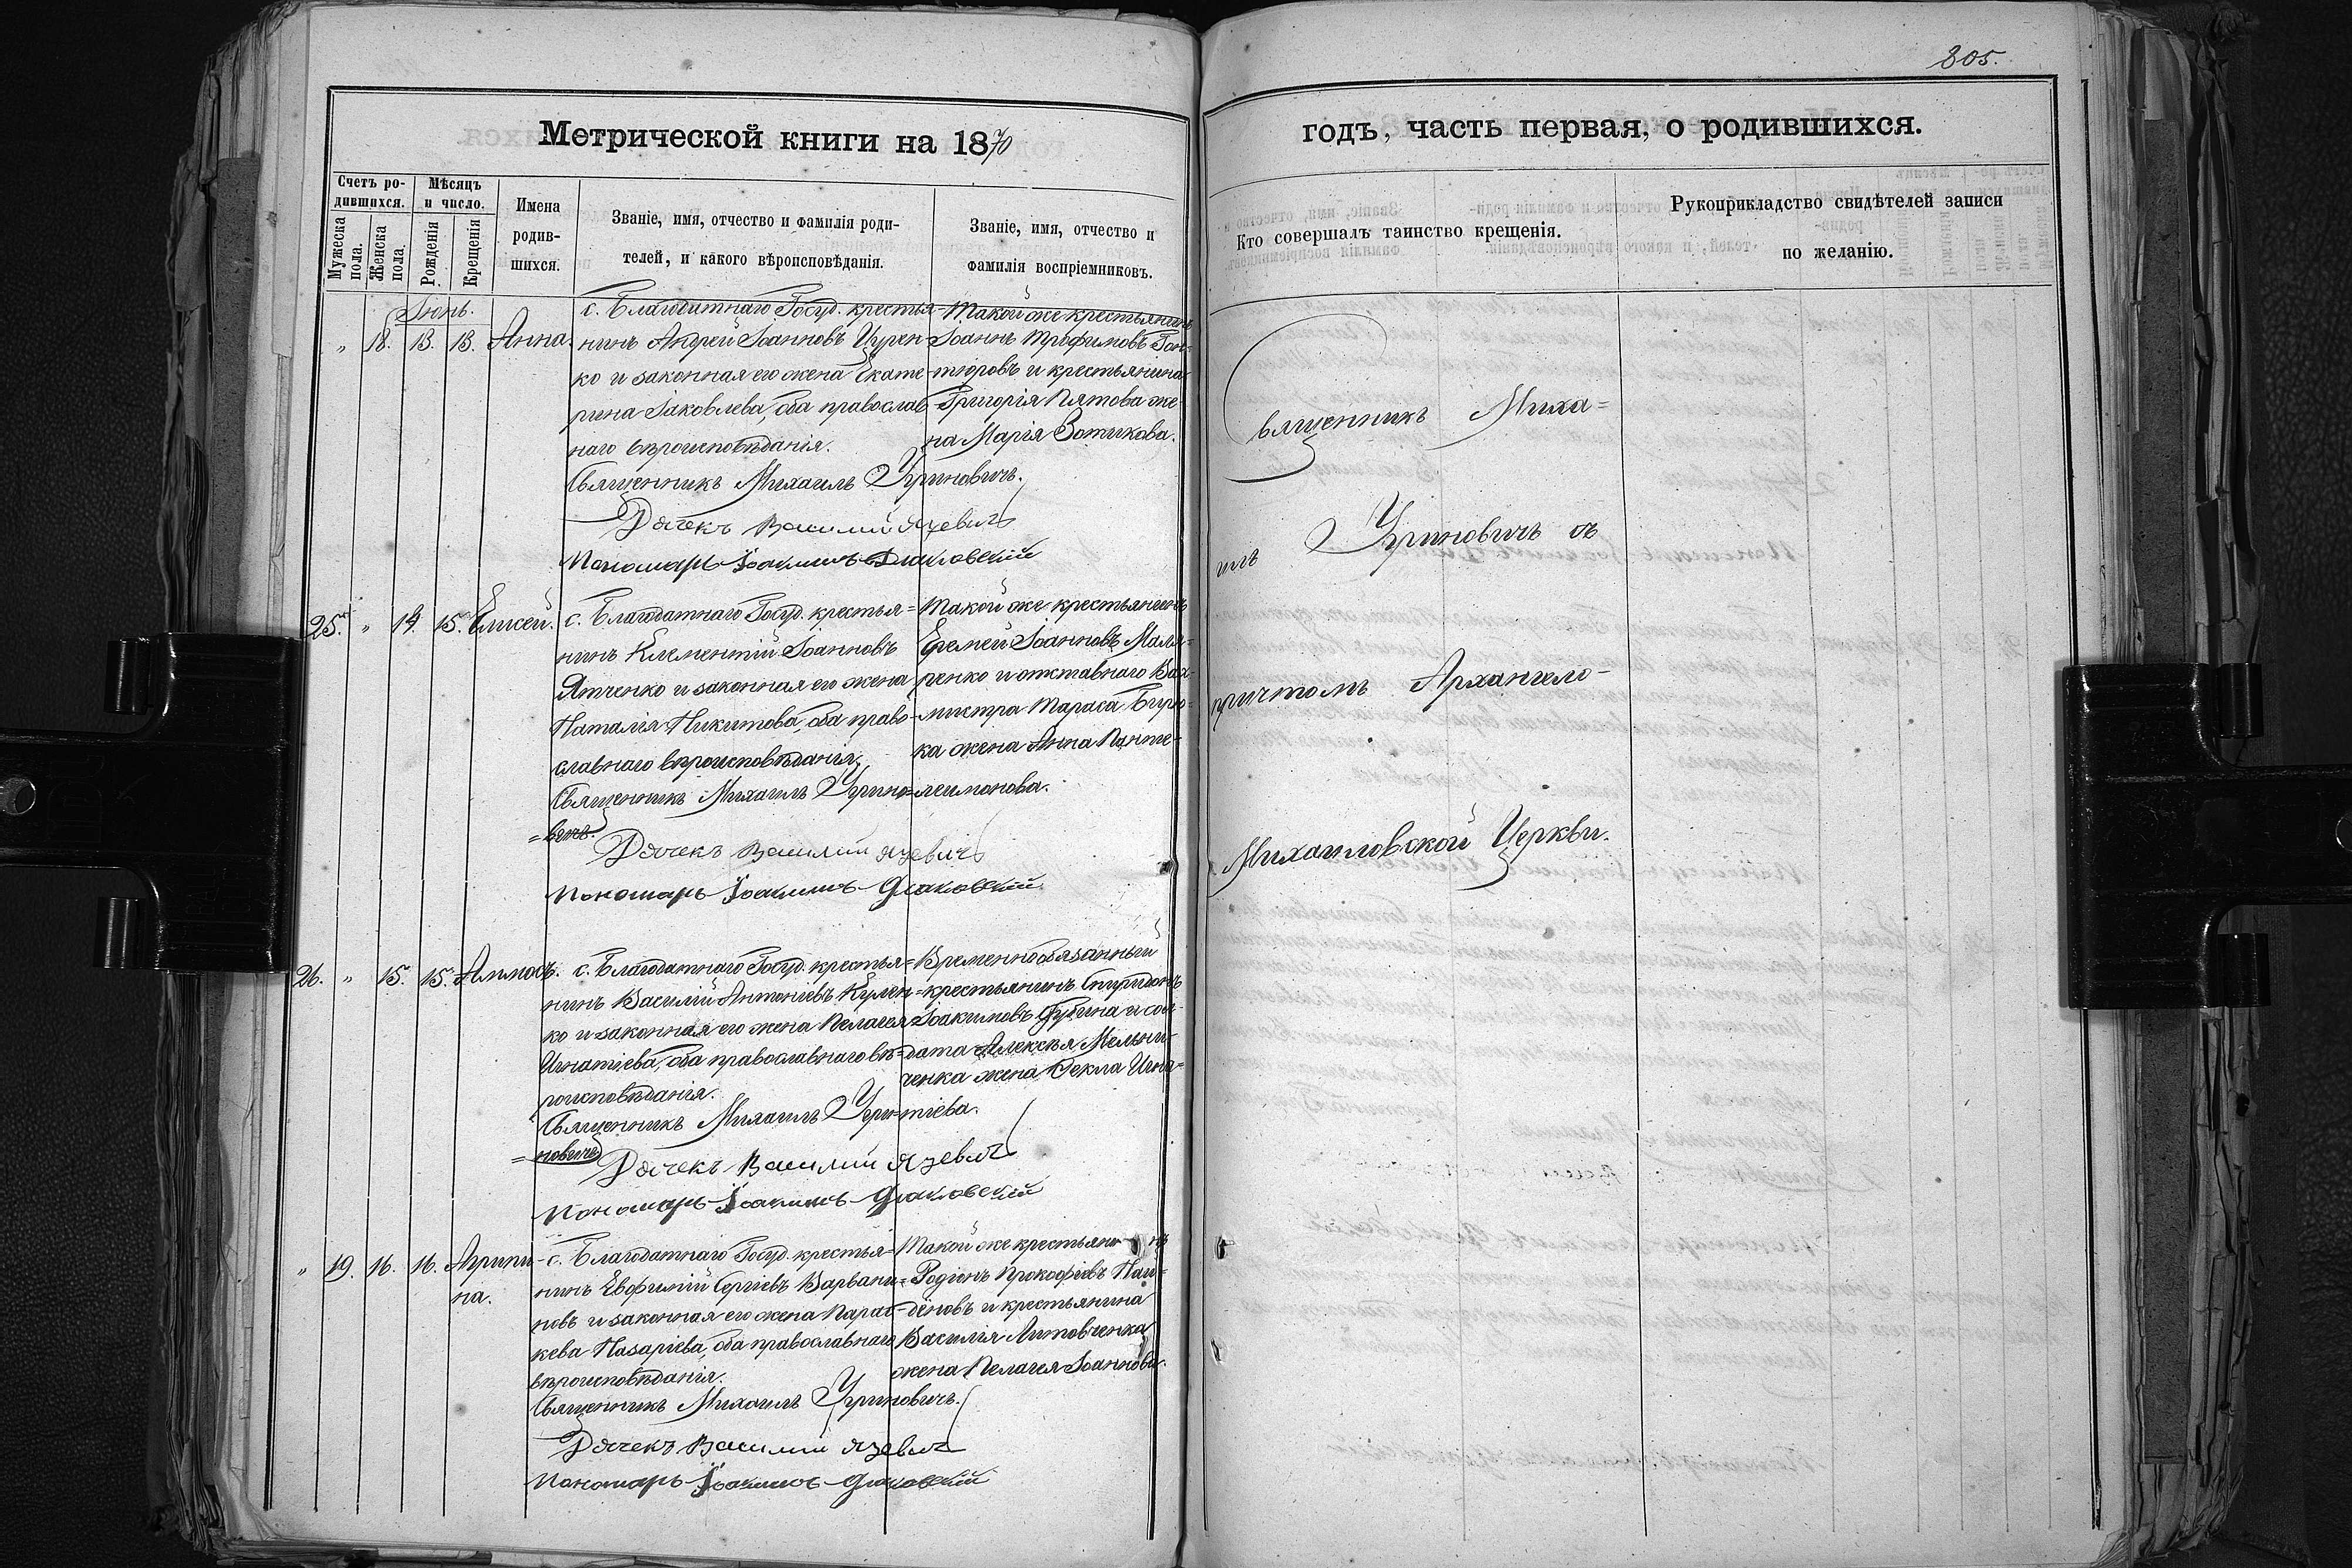 805.
Метрической книги на 1870
годъ, часть первая, о родившихся.
Счетъ ро-
дившихся.
Мѣсяцъ
и число.
Мужеска
пола.
Женска
пола.
Рожденія
Крещенія
Имена
родив-
шихся.
Званіе, имя, отчество и фамилія роди-
телей, и какого вѣроисповѣданія.
Званіе, имя, отчество и
фамилія воспріемниковъ.
Кто совершалъ таинство крещенія.
Рукоприкладство свидѣтелей записи
по желанію.
Іюнь.
" 18. 13. 13. Анна.
с. Благодатнаго Госуд. крестья-
нинъ Андрей Іоанновъ Цурен-
ко и законная его жена Екате-
рина Іаковлева, оба православ-
наго вѣроисповѣданія.
Священникъ Михаилъ Угриновичъ.
Дячекъ Василий Язевичъ
Пономарь Іоакимъ
Такой же крестьянинъ
Іоаннъ Трофимовъ Гон-
тюровъ и крестьянина
Григорія Пятова же-
на Марія Зотикова.
25. " 14. 15. Елисей.
с. Благодатнаго Госуд. крестья=
нинъ Климентій Іоанновъ
Ятченко и законная его жена
Наталія Никитова, оба право-
славнаго вѣроисповѣданія.
Священникъ Михаилъ Угрино=
=вичъ.
Дячекъ Василий Язевичъ
Пономарь Іоакимъ
Такой же крестьянинъ
Еремей Іоанновъ Маля=
ренко и отставнаго Вах-
мистра Тараса Бирю=
ка жена Анна Панте-
леимонова.
26. " 15. 15. Аммосъ.
с. Благодатнаго Госуд. крестья=
нинъ Василій Антоніевъ Кулен=
ко и законная его жена Пелагея
Игнатіева, оба православнаго вѣ=
роисповѣданія.
Священникъ Михаилъ Угри-
=новичъ
Дячекъ Василий Язевичъ
Пономарь Іоакимъ
Временнообязанный
крестьянинъ Спиридонъ
Іоакимовъ и сол-
дата Алексѣя Мельни-
ченка жена Фекла Игна=
тіева.
" 19. 16. 16. Агрипи-
на.
с. Благодатнаго Госуд. крестья=
нинъ Евфимій Сергіевъ Варвани=
новъ и законная его жена Парас-
кева Назаріева, оба православнаго
вѣроисповѣданія.
Священникъ Михаилъ Угриновичъ.
Дячекъ Василий Язевичъ
Пономарь Іоакимъ
Такой же крестьянинъ
Родіонъ Прокофіевъ Най=
дёновъ и крестьянина
Василія Литовченка
жена Пелагея Іоаннова.
Священникъ Миха=
илъ Угриновичъ съ
причтомъ Архангело-
Михаиловской Церкви.